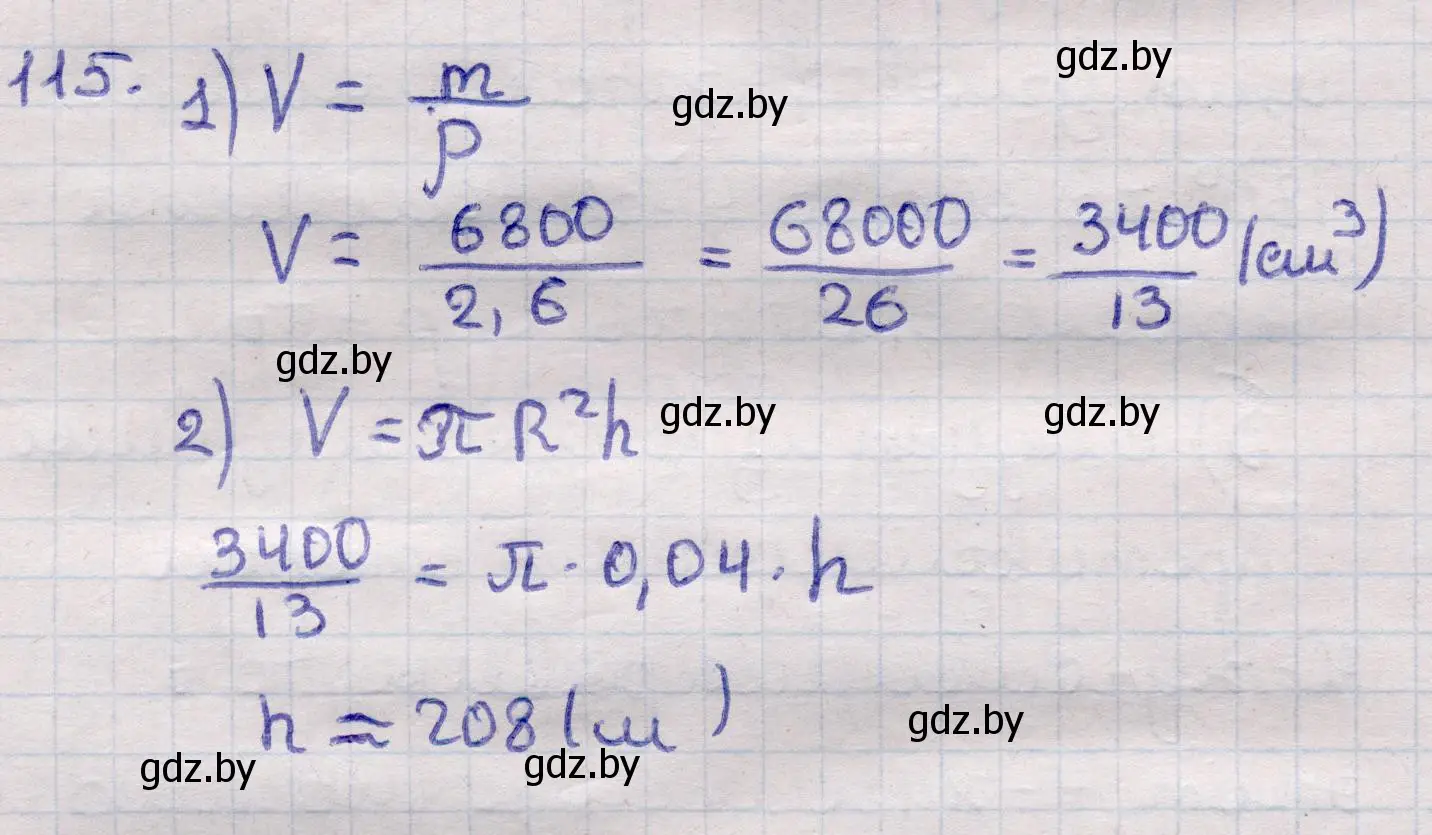 115. 1) V = m/ρ
gdz.by
gdz.by
V = 6800/2,6 = 68000/26 = 3400/13 (см³)
gdz.by
2) V = πR²h
gdz.by
gdz.by
3400/13 = π · 0,04 · h
h ≈ 208 (м)
gdz.by
gdz.by
gdz.by